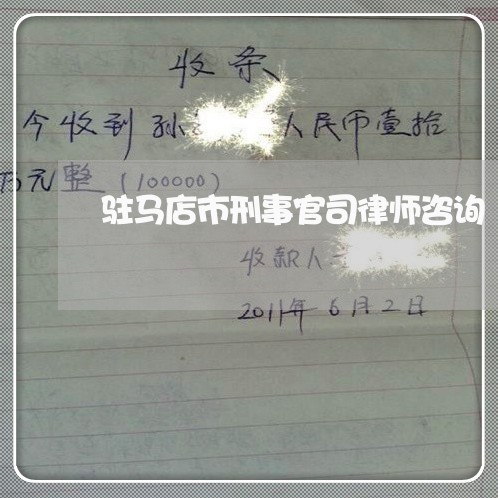 收条
今收到孙 人民币壹拾
万元整(100000)
驻马店市刑事官司律师咨询
收款人
2011年6月2日